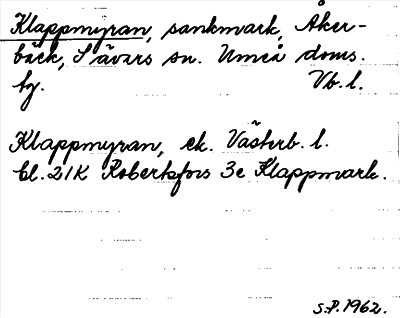 Klappmyran, sankmark, Åker-
bäck, Sävars sn. Umeå doms.
by. Vb. l.
Klappmyran, ek. Västerb. l.
bl. 21K Robertsfors 3e Klappmark.
S.P. 1962.